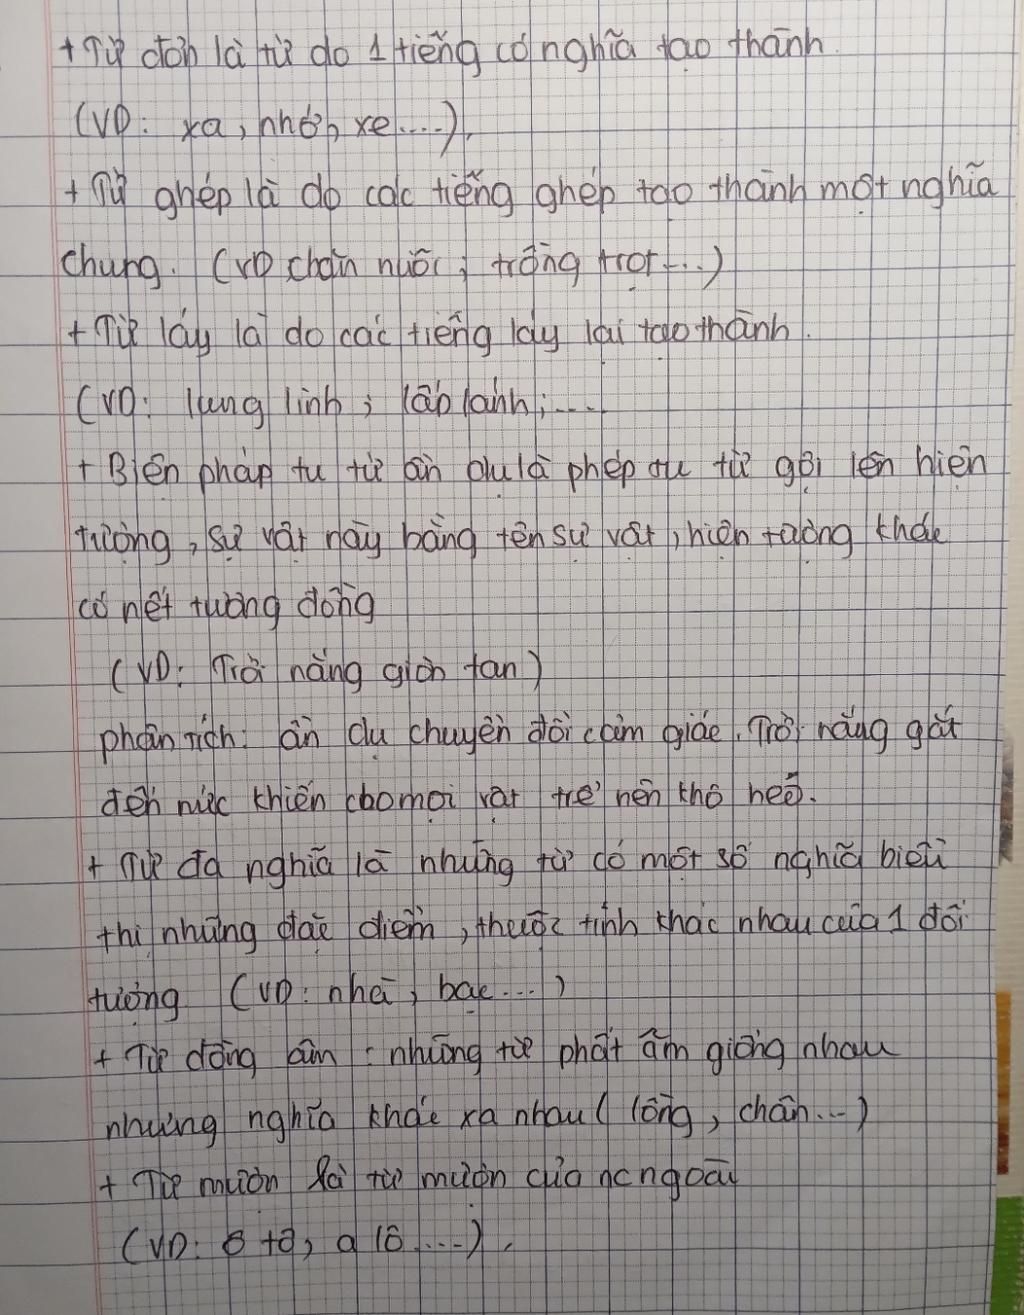 + Từ đơn là từ do 1 tiếng có nghĩa tạo thành.
(VD: xa, nhớ, xe....),
+ Từ ghép là do các tiếng ghép tạo thành một nghĩa
chung. (VD chăn nuôi, trồng trọt...)
+ Từ láy là do các tiếng láy lại tạo thành.
(VD: lung linh; lấp lánh;....
+ Biện pháp tu từ ẩn dụ là phép tu từ gọi lên hiện
tượng, sự vật này bằng tên sự vật, hiện tượng khác
có nét tương đồng
(VD: Trời nắng giòn tan)
phân tích: ẩn dụ chuyển đổi cảm giác. Trời nắng gắt
đến mức khiến cho mọi vật trở nên khô héo.
+ Từ đa nghĩa là những từ có một số nghĩa biểu
thị những đặc điểm, thuộc tính khác nhau của 1 đối
tượng (VD: nhà, bạc...)
+ Từ đồng âm: những từ phát âm giống nhau
nhưng nghĩa khác xa nhau (lồng, chân...)
+ Từ mượn là từ mượn của nc ngoài
(VD: ô tô, a lô....).